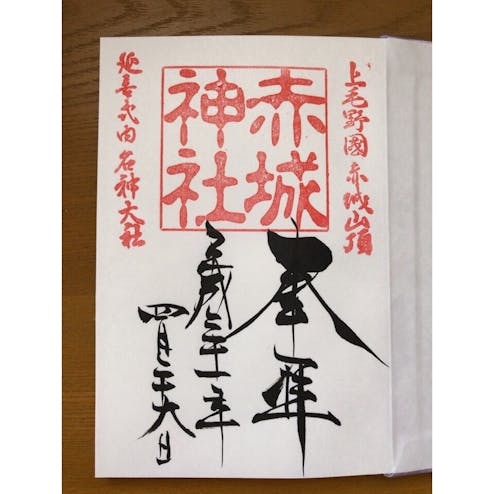 上毛野國赤城山頂
赤城
神社
延喜式内名神大社
奉拝
平成三十一年
四月二十六日